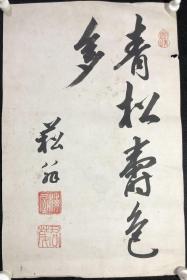 青松壽色
多
菘翁